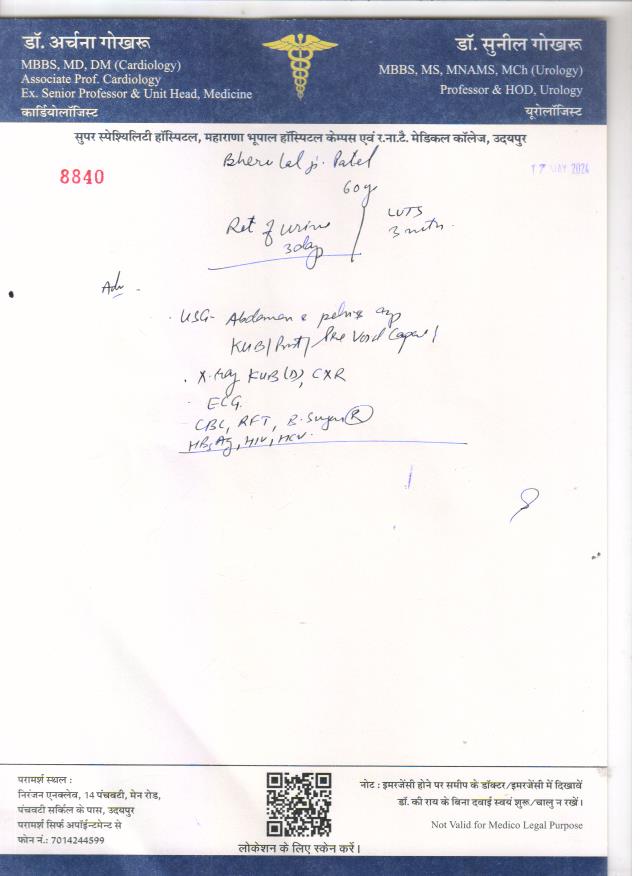 डॉ. अर्चना गोखरू
MBBS, MD, DM (Cardiology)
Associate Prof. Cardiology
Ex. Senior Professor & Unit Head, Medicine
कार्डियोलॉजिस्ट
डॉ. सुनील गोखरू
MBBS, MS, MNAMS, MCh (Urology)
Professor & HOD, Urology
यूरोलॉजिस्ट
सुपर स्पेश्यिलिटी हॉस्पिटल, महाराणा भूपाल हॉस्पिटल केम्पस एवं र.ना.टै. मेडिकल कॉलेज, उदयपुर
8840
17 MAY 2024
Bheru Lal ji. Patel
60 y
Ret of urine
3 day
LUTS
3 mth.
Adv -
. USG- Abdomen & pelvis
KUB/Prost/Pre Void
. X-Ray KUB (D), CXR
- ECG
- CBC, RFT, B. Sugar (R)
HBsAg, HIV, HCV.
परामर्श स्थल :
निरंजन एनक्लेव, 14 पंचवटी, मेन रोड,
पंचवटी सर्किल के पास, उदयपुर
परामर्श सिर्फ अपॉईन्टमेन्ट से
फोन नं.: 7014244599
लोकेशन के लिए स्केन करें।
नोट : इमरजेंसी होने पर समीप के डॉक्टर/इमरजेंसी में दिखावें
डॉ. की राय के बिना दवाई स्वयं शुरू/चालु न रखें।
Not Valid for Medico Legal Purpose